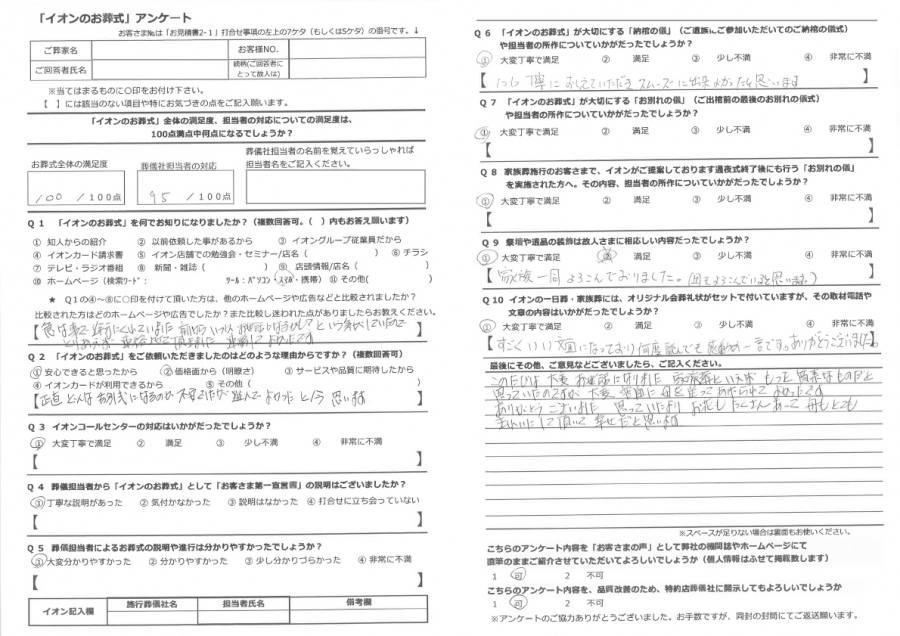 「イオンのお葬式」アンケート
お客さま№は「お見積書2-1」打合せ事項の左上の7ケタ（もしくは5ケタ）の番号です。↓
ご葬家名
お客様NO.
ご回答者氏名
続柄(ご回答者にとって故人は)
※当てはまるものに○印をお付け下さい。
【　】には該当のない項目や特にお気づきの点をご記入願います。
「イオンのお葬式」全体の満足度、担当者の対応についての満足度は、
100点満点中何点になるでしょうか？
お葬式全体の満足度
葬儀社担当者の対応
葬儀社担当者の名前を覚えていらっしゃれば
担当者名をご記入ください。
100 / 100点
95 / 100点
Ｑ１　「イオンのお葬式」を何でお知りになりましたか？（複数回答可。（　）内もお答え願います）
① 知人からの紹介　② 以前依頼した事があるから　③ イオングループ従業員だから
④ イオンカード請求書　⑤ イオン店舗での勉強会・セミナー/店名（　）⑥ チラシ
⑦ テレビ・ラジオ番組　⑧ 新聞・雑誌（　）⑨ 店頭情報/店名（　）
⑩ ホームページ（検索ﾜｰﾄﾞ：　ﾂｰﾙ：パソコン・スマホ・携帯）⑪ その他(　)
★　Ｑ１の④～⑧に○印を付けて頂いた方は、他のホームページや広告などと比較されましたか？
比較された方はどのホームページや広告でしたか？また比較し迷われた点がありましたらお教えください。
Ｑ２　「イオンのお葬式」をご依頼いただきましたのはどのような理由からですか？（複数回答可）
①安心できると思ったから　②価格面から（明瞭さ）　③サービスや品質に期待したから
④イオンカードが利用できるから　⑤その他（　）
【正直どんなお別式になるのか不安でしたが 選んで よかった と今 思います
Ｑ３　イオンコールセンターの対応はいかがだったでしょうか？
① 大変丁寧で満足　② 満足　③ 少し不満　④ 非常に不満
【　】
Ｑ４　葬儀担当者から「イオンのお葬式」として「お客さま第一宣言書」の説明はございましたか？
①丁寧な説明があった　②気付かなかった　③説明はなかった　④打合せに立ち会っていない
【　】
Ｑ５　葬儀担当者によるお葬式の説明や進行は分かりやすかったでしょうか？
①大変分かりやすかった　②分かりやすかった　③少し分かりづらかった　④非常に不満
【　】
イオン記入欄
施行葬儀社名
担当者氏名
備考欄
Ｑ６　「イオンのお葬式」が大切にする「納棺の儀」（ご遺族にご参加いただいてのご納棺の儀式）
や担当者の所作についていかがだったでしょうか？
① 大変丁寧で満足　② 満足　③ 少し不満　④ 非常に不満
丁寧に おしえていただき スムーズに出来 よかったと思います
Ｑ７　「イオンのお葬式」が大切にする「お別れの儀」（ご出棺前の最後のお別れの儀式）
や担当者の所作についていかがだったでしょうか？
① 大変丁寧で満足　② 満足　③ 少し不満　④ 非常に不満
【　】
Ｑ８　家族葬施行のお客さまで、イオンがご提案しております通夜式終了後にも行う「お別れの儀」
を実施された方へ。その内容、担当者の所作についていかがだったでしょうか？
① 大変丁寧で満足　② 満足　③ 少し不満　④ 非常に不満
【　】
Ｑ９　祭壇や遺品の装飾は故人さまに相応しい内容だったでしょうか？
① 大変丁寧で満足　② 満足　③ 少し不満　④ 非常に不満
【家族一同 よろこんでおりました。(母もよろこんでいると思います。)
Ｑ10　イオンの一日葬・家族葬には、オリジナル会葬礼状がセットで付いていますが、その取材電話や
文章の内容はいかがだったでしょうか？
① 大変丁寧で満足　② 満足　③ 少し不満　④ 非常に不満
【すごくいい文面になっており何度読んでも感動の一言です。ありがとうございました。
最後にその他、ご意見などございましたら、ご記入ください。
このたびは 大変 お世話になりました 家族葬といえば もっと簡素なものだと
思っていたのですが
ありがとうございました 思っていたより お花も たくさんあって 母もとても
きれいにして頂いて 幸せだと思います
※スペースが足りない場合は裏面もお使いください。
こちらのアンケート内容を「お客さまの声」として弊社の機関誌やホームページにて
直筆のままご紹介させていただいてよろしいでしょうか（個人情報はふせて掲載致します）
1　可　2　不可
こちらのアンケート内容を、品質改善のため、特約店葬儀社に開示してもよろしいでしょうか
1　可　2　不可
※アンケートのご協力ありがとうございました。お手数ですが、同封の封筒にてご返送願います。